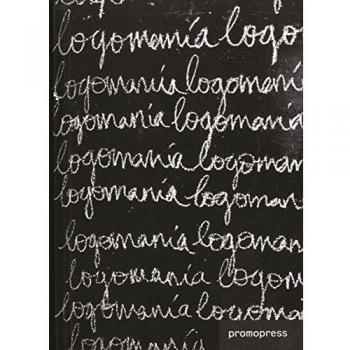 logomanía logo
logomanía logomaní
logomanía logomanía
logomanía logoman
logomanía logoman
logomanía logoman
logomanía logoman
logomanía logoma
promopress